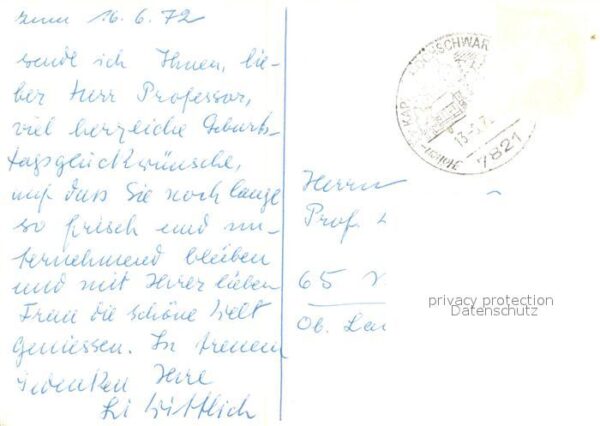 zum 16.6.72
sende ich Ihnen, lie-
ber Herr Professor,
viel herzliche Geburts-
tagsglückwünsche,
auf daß Sie noch lange
so frisch und un-
ternehmend bleiben
und mit Ihrer lieben
Frau die schöne Welt
geniessen. In treuem
Gedenken Ihre
Li Wittlich
7821
Herrn
Prof.
65
Ob. Lan
privacy protection
Datenschutz